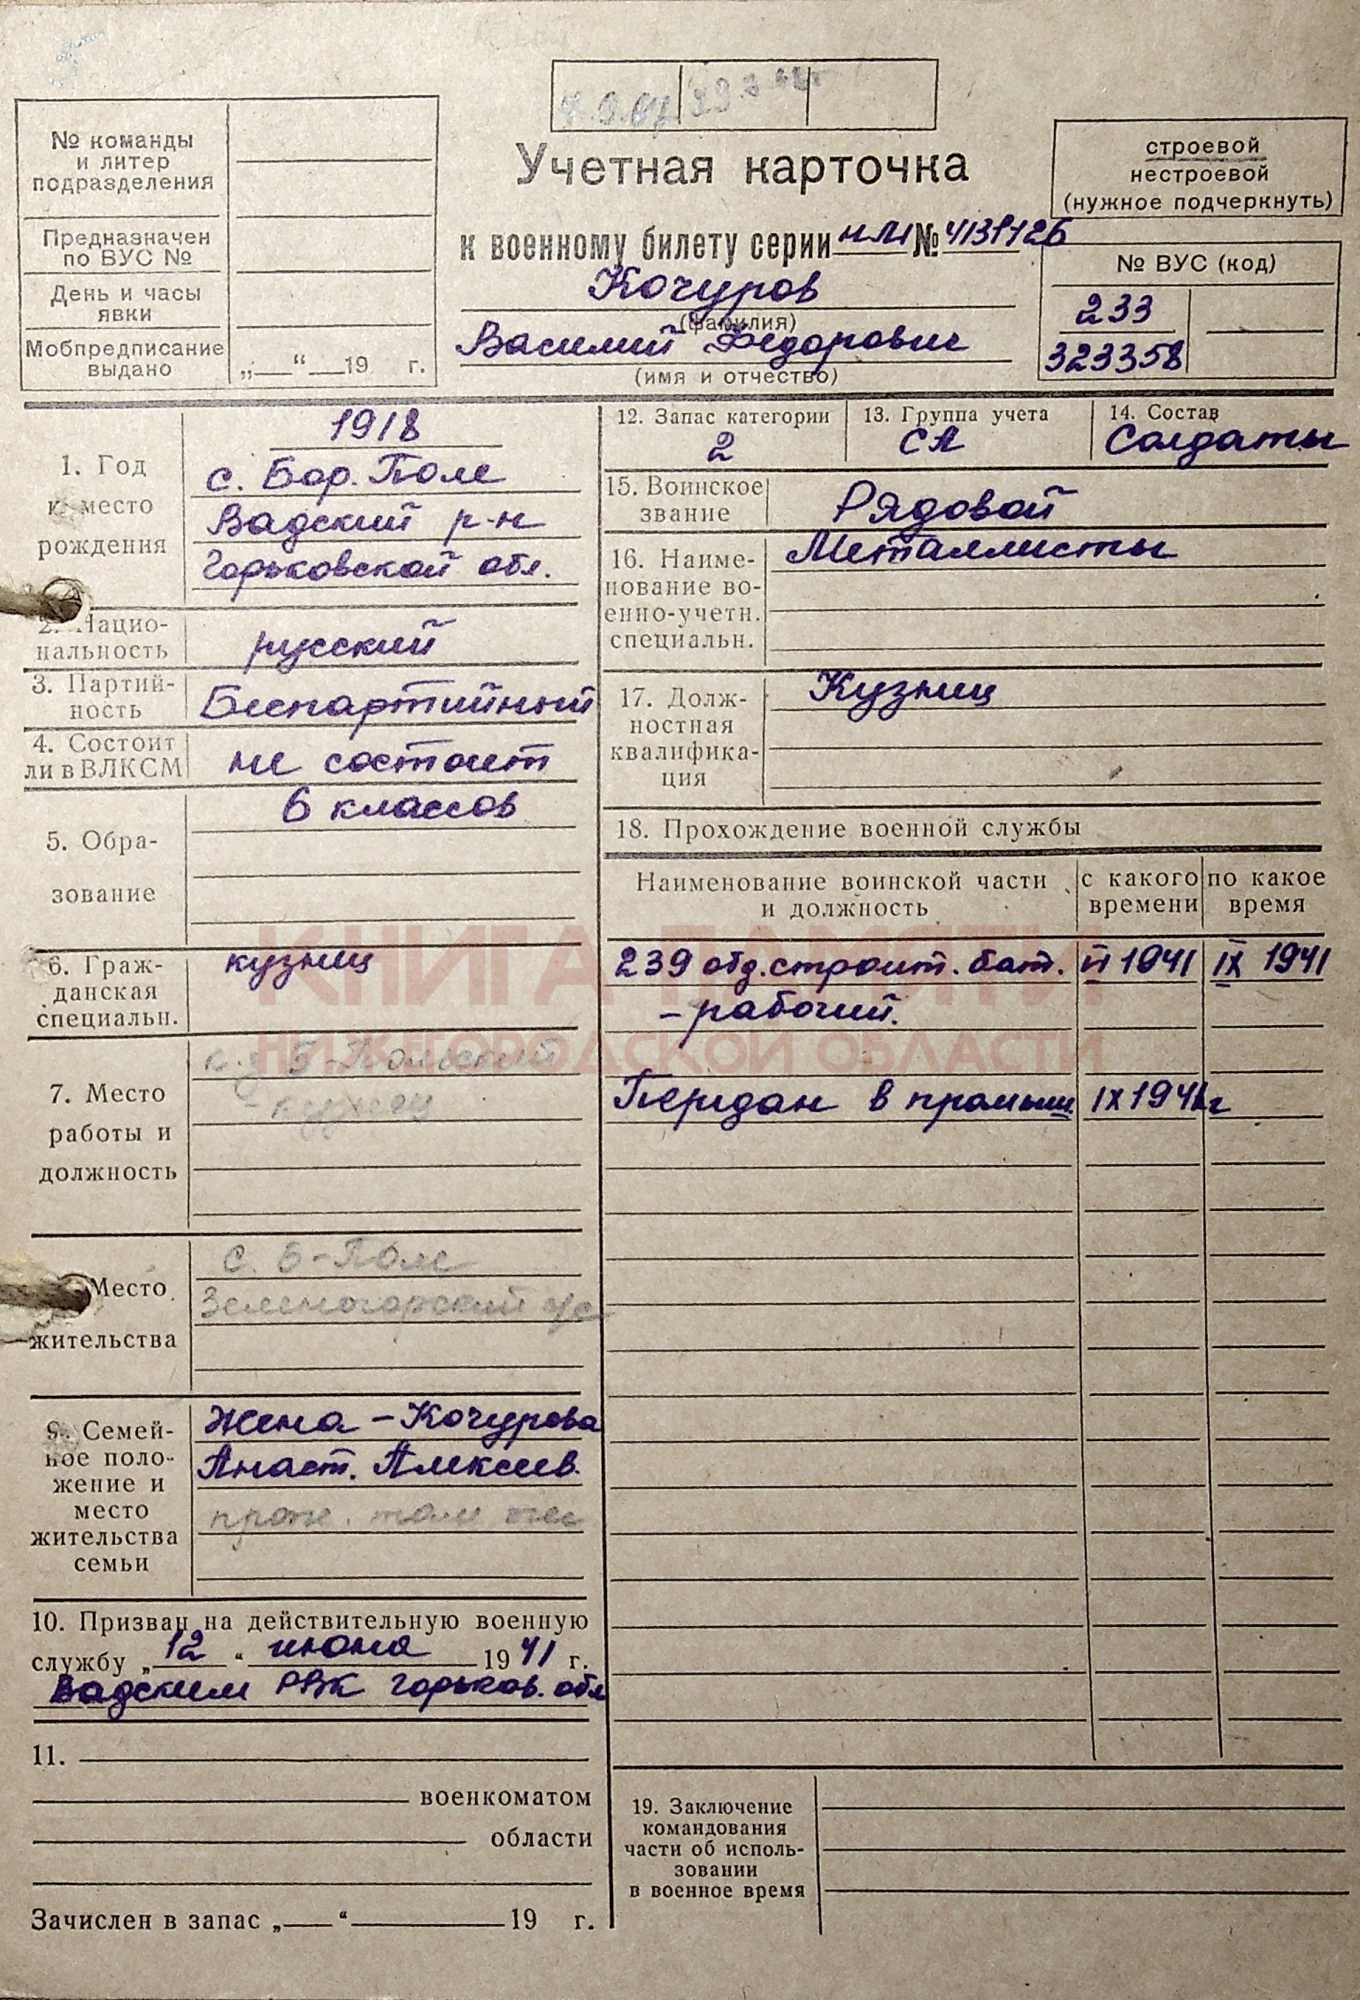 № команды
и литер
подразделения
Предназначен
по ВУС №
День и часы
явки
Мобпредписание
выдано
„ “ 19 г.
Учетная карточка
к военному билету серии НМ № 4131126
Кочуров
(фамилия)
Василий Федорович
(имя и отчество)
строевой
нестроевой
(нужное подчеркнуть)
№ ВУС (код)
233
323358
1. Год
и место
рождения
1918
с. Бор. Поле
Вадский р-н
Горьковской обл.
2. Нацио-
нальность
русский
3. Партий-
ность
Беспартийный
4. Состоит
ли в ВЛКСМ
не состоит
5. Обра-
зование
6 классов
6. Граж-
данская
специальн.
кузнец
7. Место
работы и
должность
к-з Б-Польский
- кузнец
Место
жительства
с. Б-Поле
Зеленогорский с/с
9. Семей-
ное поло-
жение и
место
жительства
семьи
Жена - Кочурова
Анаст. Алексеев.
прож. там же
10. Призван на действительную военную
службу „12“ июня 1941 г.
Вадским РВК Горьков. обл
11.
военкоматом
области
Зачислен в запас „ “ 19 г.
12. Запас категории
2
13. Группа учета
СА
14. Состав
Солдаты
15. Воинское
звание
Рядовой
16. Наиме-
нование во-
енно-учетн.
специальн.
Металлисты
17. Долж-
ностная
квалифика-
ция
Кузнец
18. Прохождение военной службы
Наименование воинской части
и должность
с какого
времени
по какое
время
239 отд. строит. бат. VI 1941 IX 1941
- рабочий.
Передан в промышл. IX 1941г
19. Заключение
командования
части об исполь-
зовании
в военное время
КНИГА ПАМЯТИ
НИЖЕГОРОДСКОЙ ОБЛАСТИ